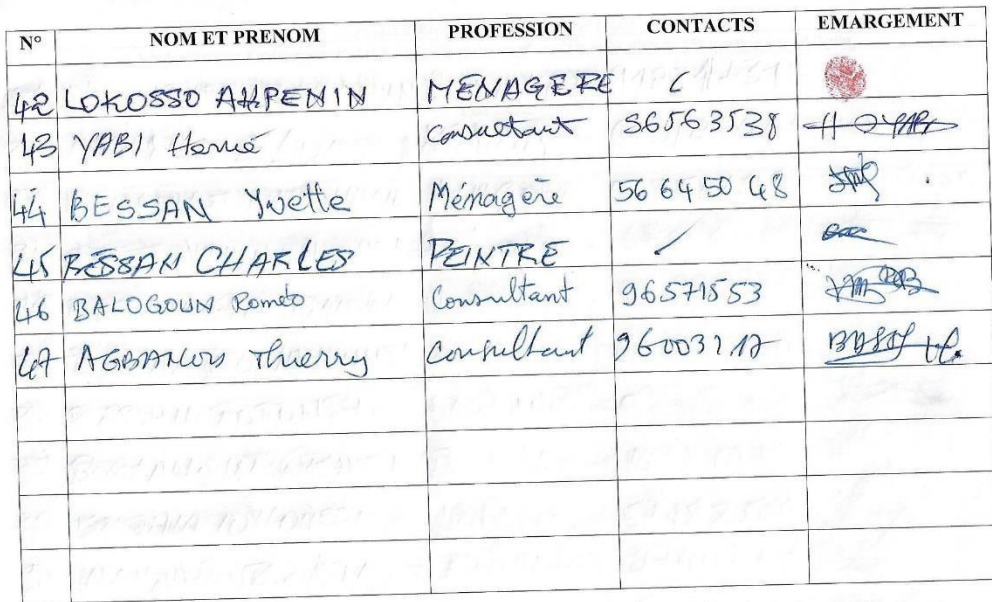 N° NOM ET PRENOM PROFESSION CONTACTS EMARGEMENT
42 LOKOSSO AKPENIN MENAGERE
43 YABI Hervé Consultant 96563538
44 BESSAN Yvette Ménagère 56 64 50 48
45 BESSAN CHARLES PEINTRE /
46 BALOGOUN Roméo Consultant 96571553
47 Thierry Consultant